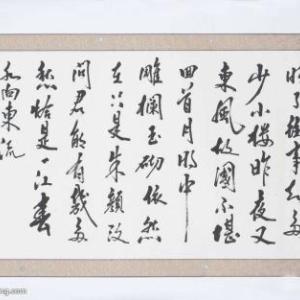 時了往事知多
少小樓昨夜又
東風故國不堪
回首月明中
雕欄玉砌依然
在只是朱顏改
問君能有幾多
愁恰是一江春
水向東流
ng.com